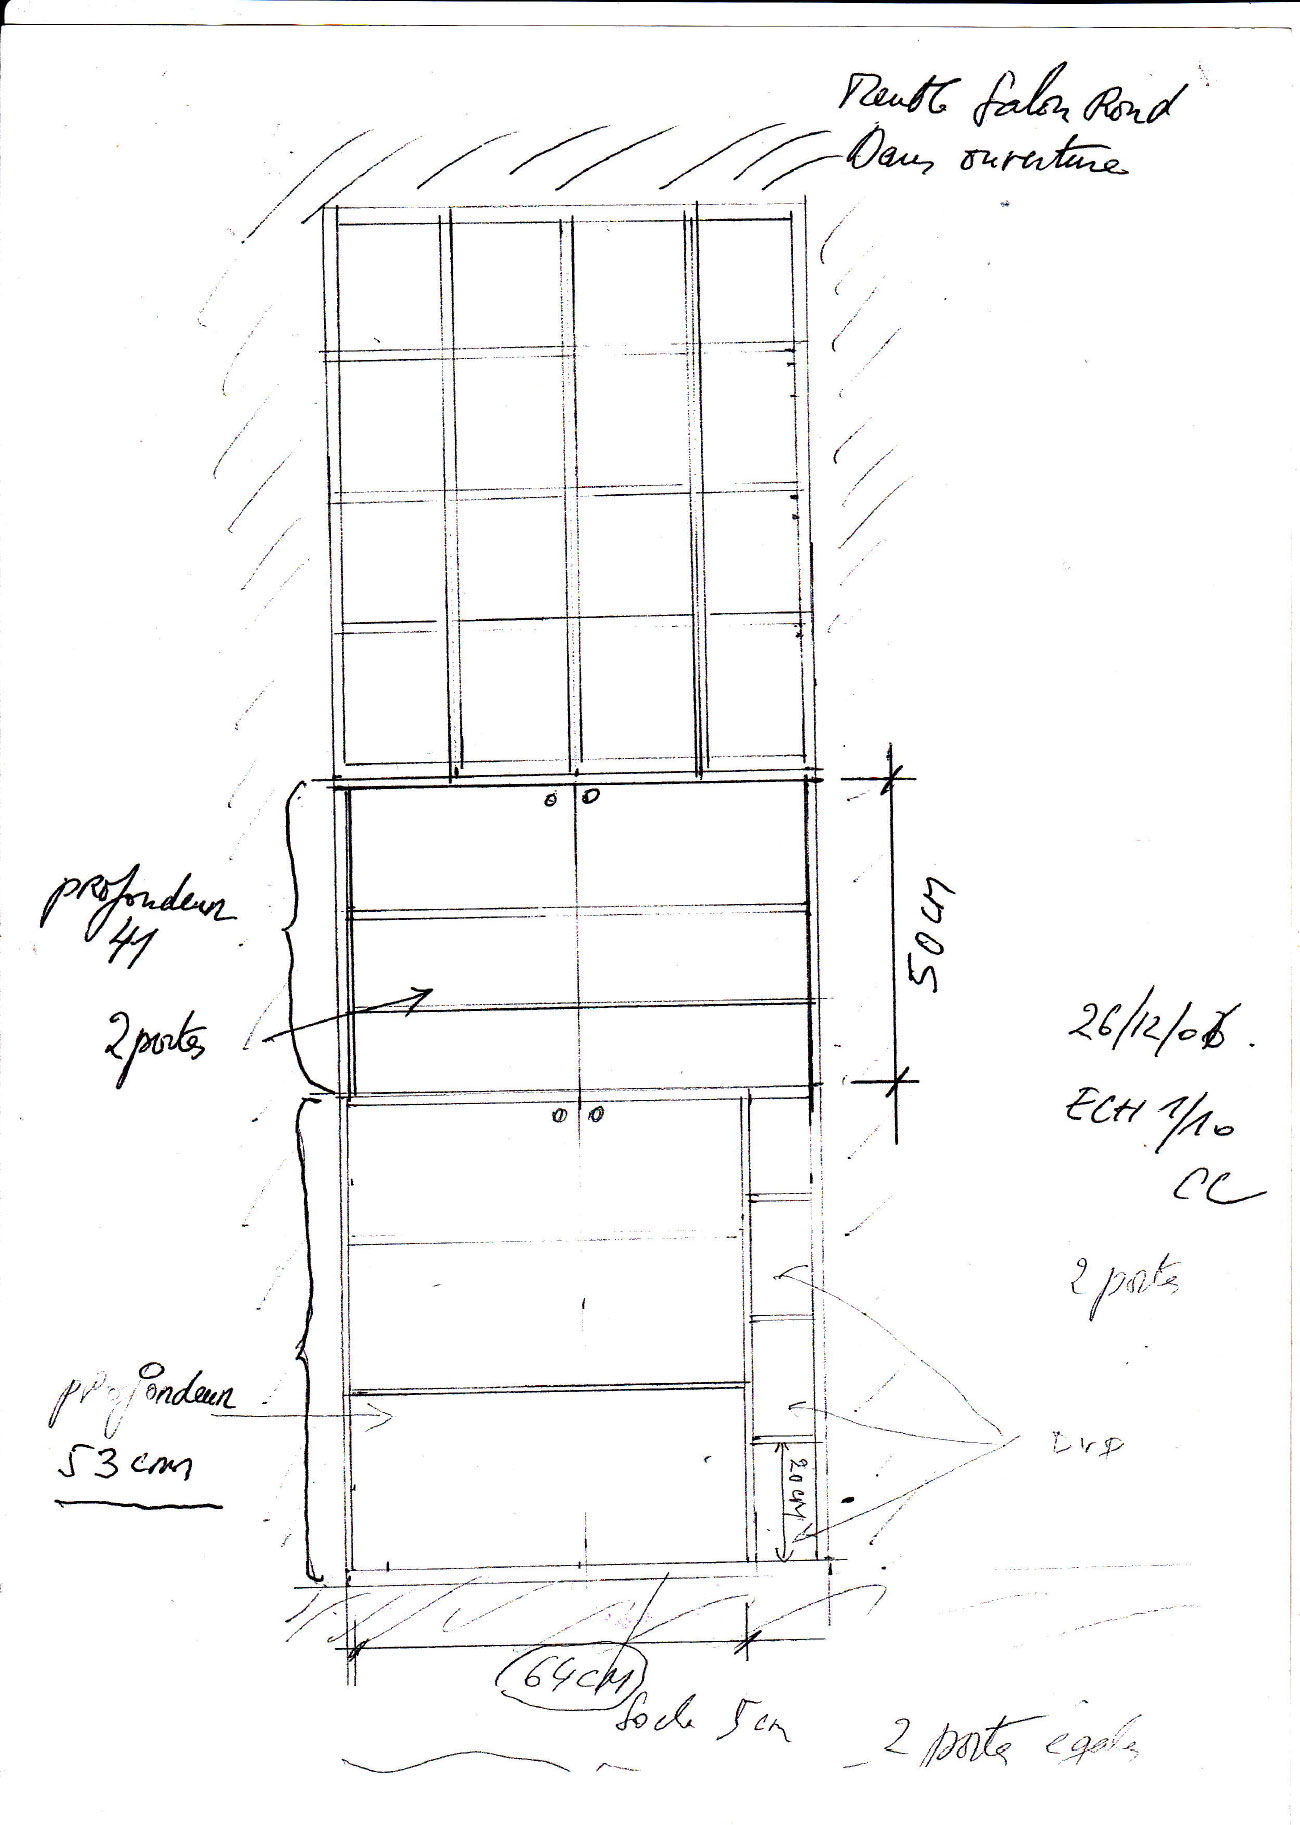 Meuble Salon Rond
Dans ouverture
profondeur
41
2 portes
50 CM
26/12/06.
ECH 1/10
CC
2 portes
profondeur
53 cm
DVD
20 CM
64 CM
Socle 5 cm
2 portes égales